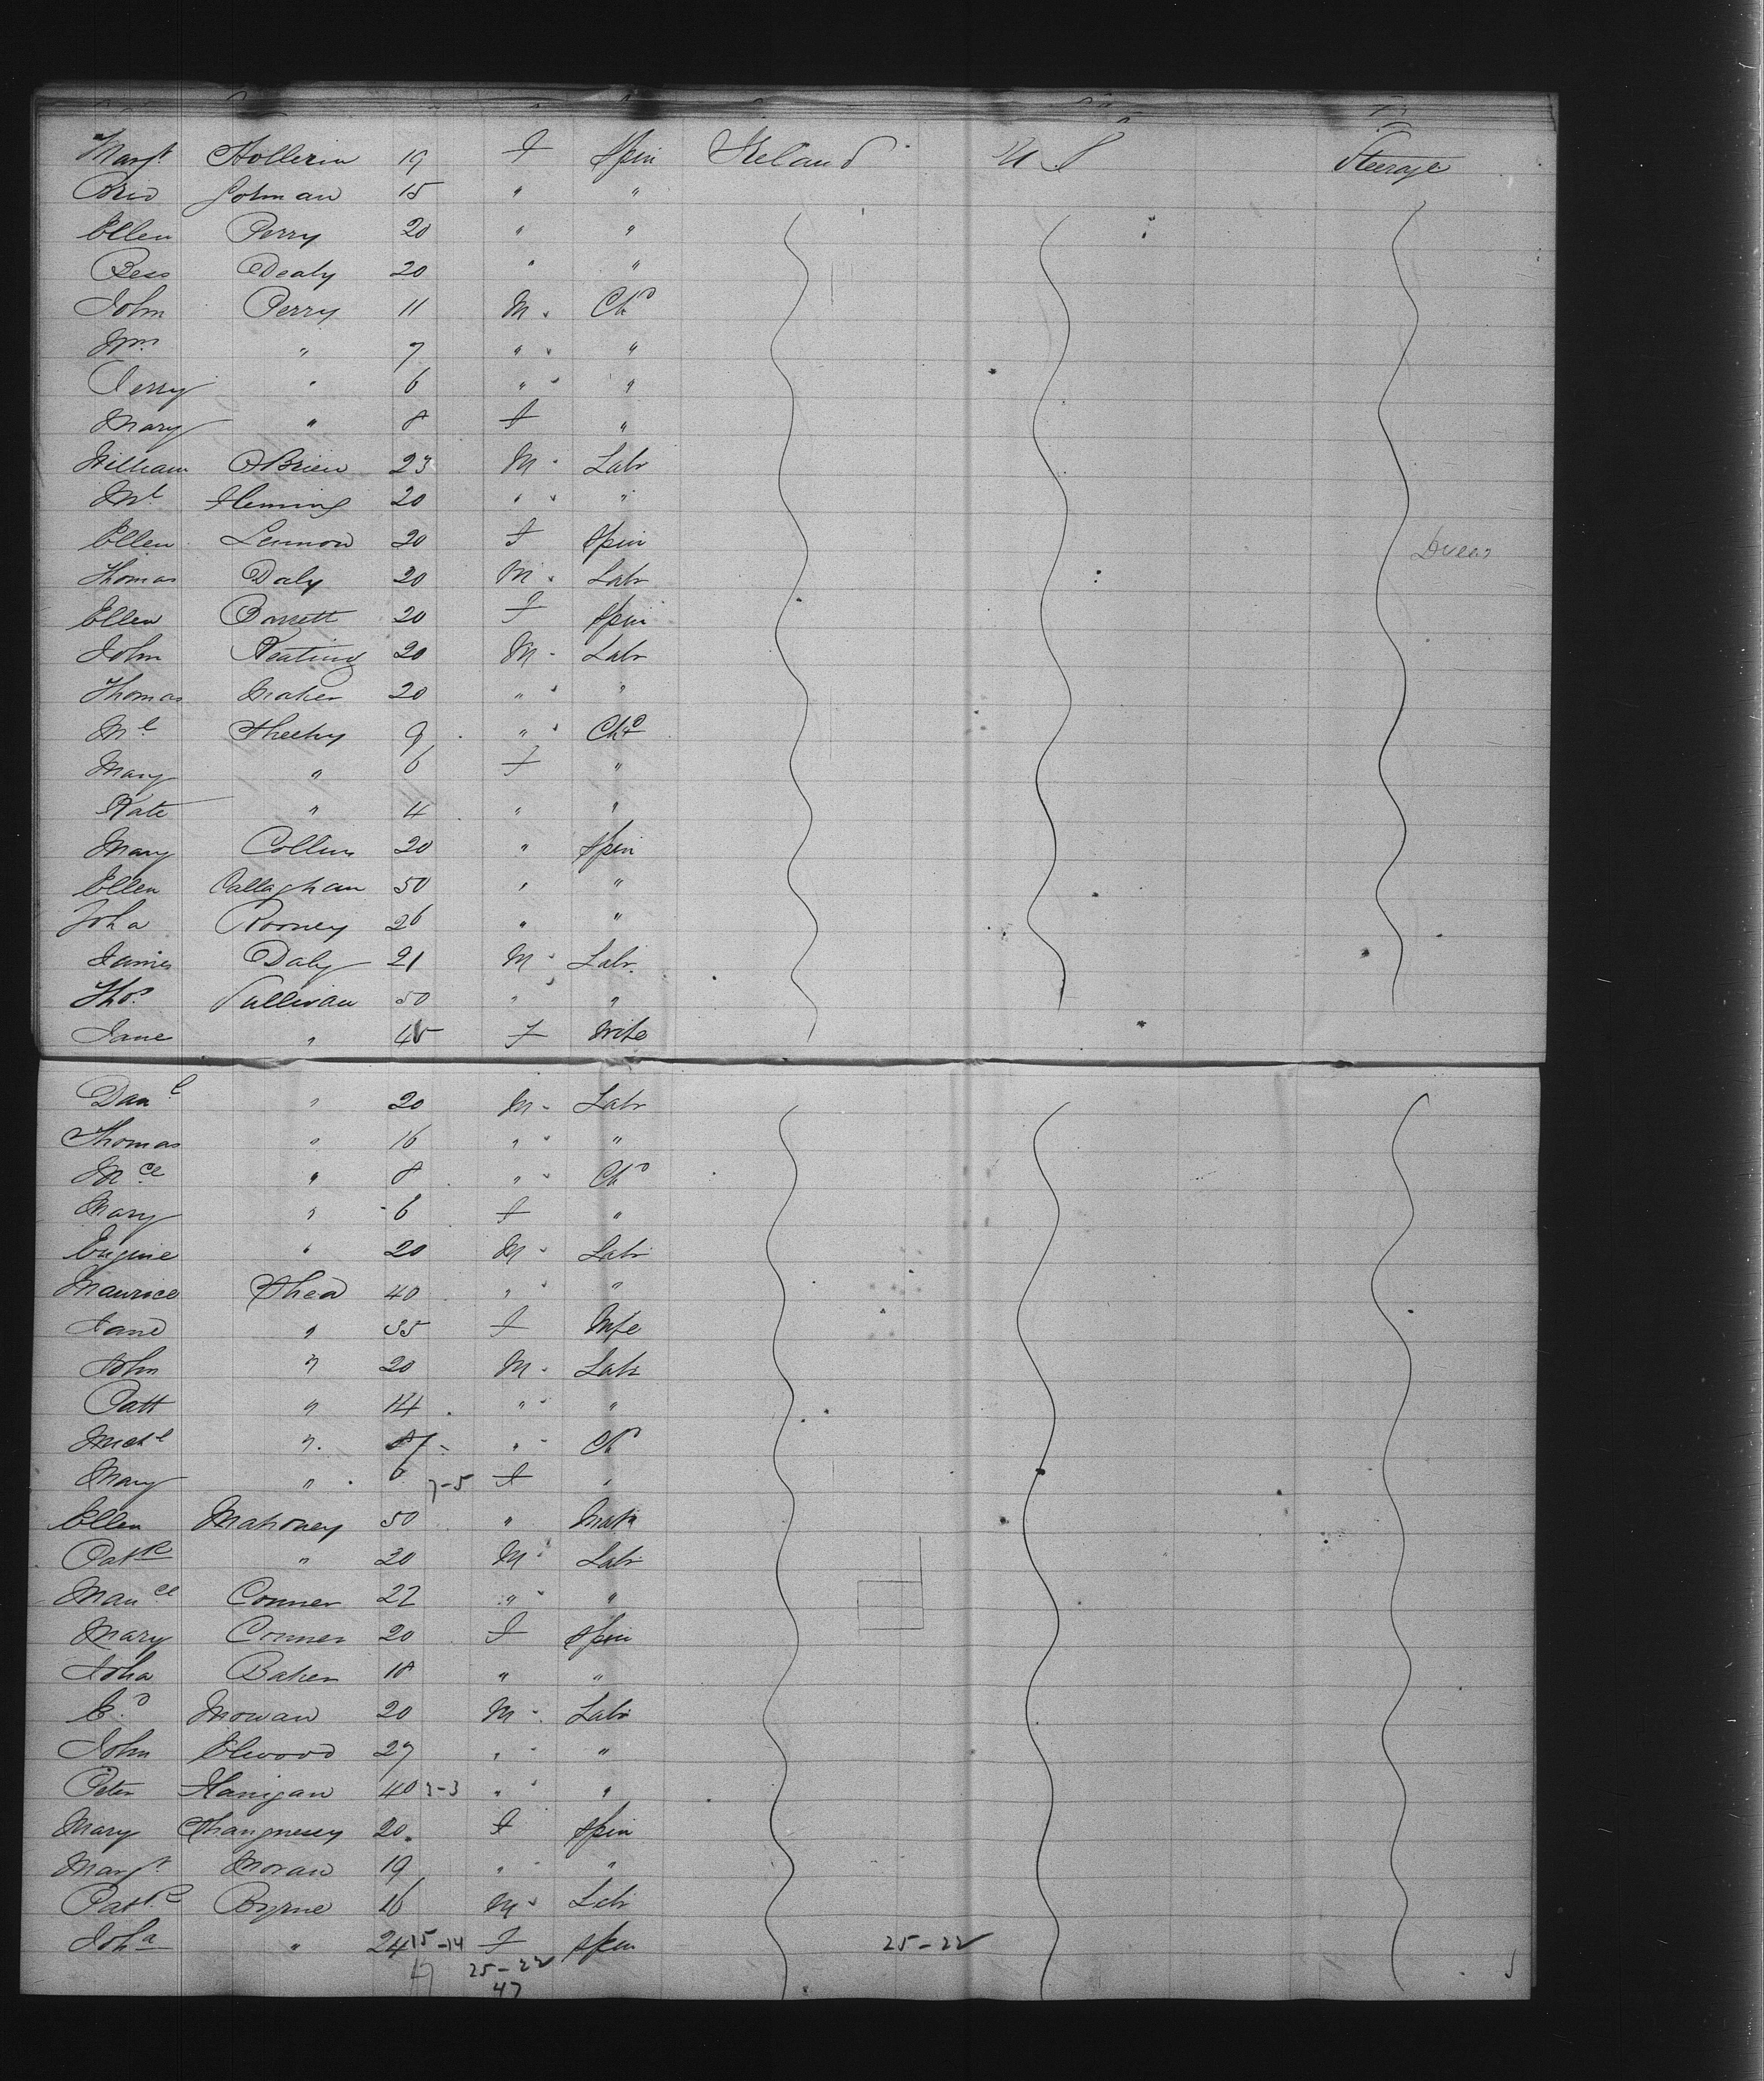 Margt Hollerin 19 F Spin Ireland U S Steerage
Brid Golman 15 " "
Ellen Perry 20 " "
Bess Dealy 20 " "
John Perry 11 M Chd
Wm " 7 " "
Jerry " 6 " "
Mary " 8 F "
William OBrien 23 M Labr
Ml Fleming 20 " "
Ellen Lennon 20 F Spin
Thomas Daly 20 M Labr
Ellen 20 F Spin
John Keating 20 M Labr
Thomas Maher 20 " "
Ml Sheehy 9 " Chd
Mary " 6 F "
Kate " 4 " "
Mary Collins 20 " Spin
Ellen Callaghan 50 " "
Joha Rooney 26 " "
James Daly 21 M Labr
Thos Sullivan 50 " "
Jane " 45 F Wife
Danl " 20 M Labr
Thomas " 16 " "
Mce " 8 " Chd
Mary " 6 F "
Eugine " 20 M Labr
Maurice Shea 40 " "
Jane " 35 F Wife
John " 20 M Labr
Patt " 14 " "
Michl " 7 " Chd
Mary " 6 7-5 F "
Ellen Mahoney 50 " Matn
Patk " 30 M Labr
Mauce Conner 22 " "
Mary Conner 20 F Spin
Joha Baker 18 " "
Ed Mowan 20 M Labr
John Elwood 27 " "
Peter Hanigan 40 3-3 " "
Mary Shangnesey 20 F Spin
Margt Moran 19 " "
Patk Byrne 16 M Labr
Joha " 24 15-14 F Spin 25-22
47 25-22
47